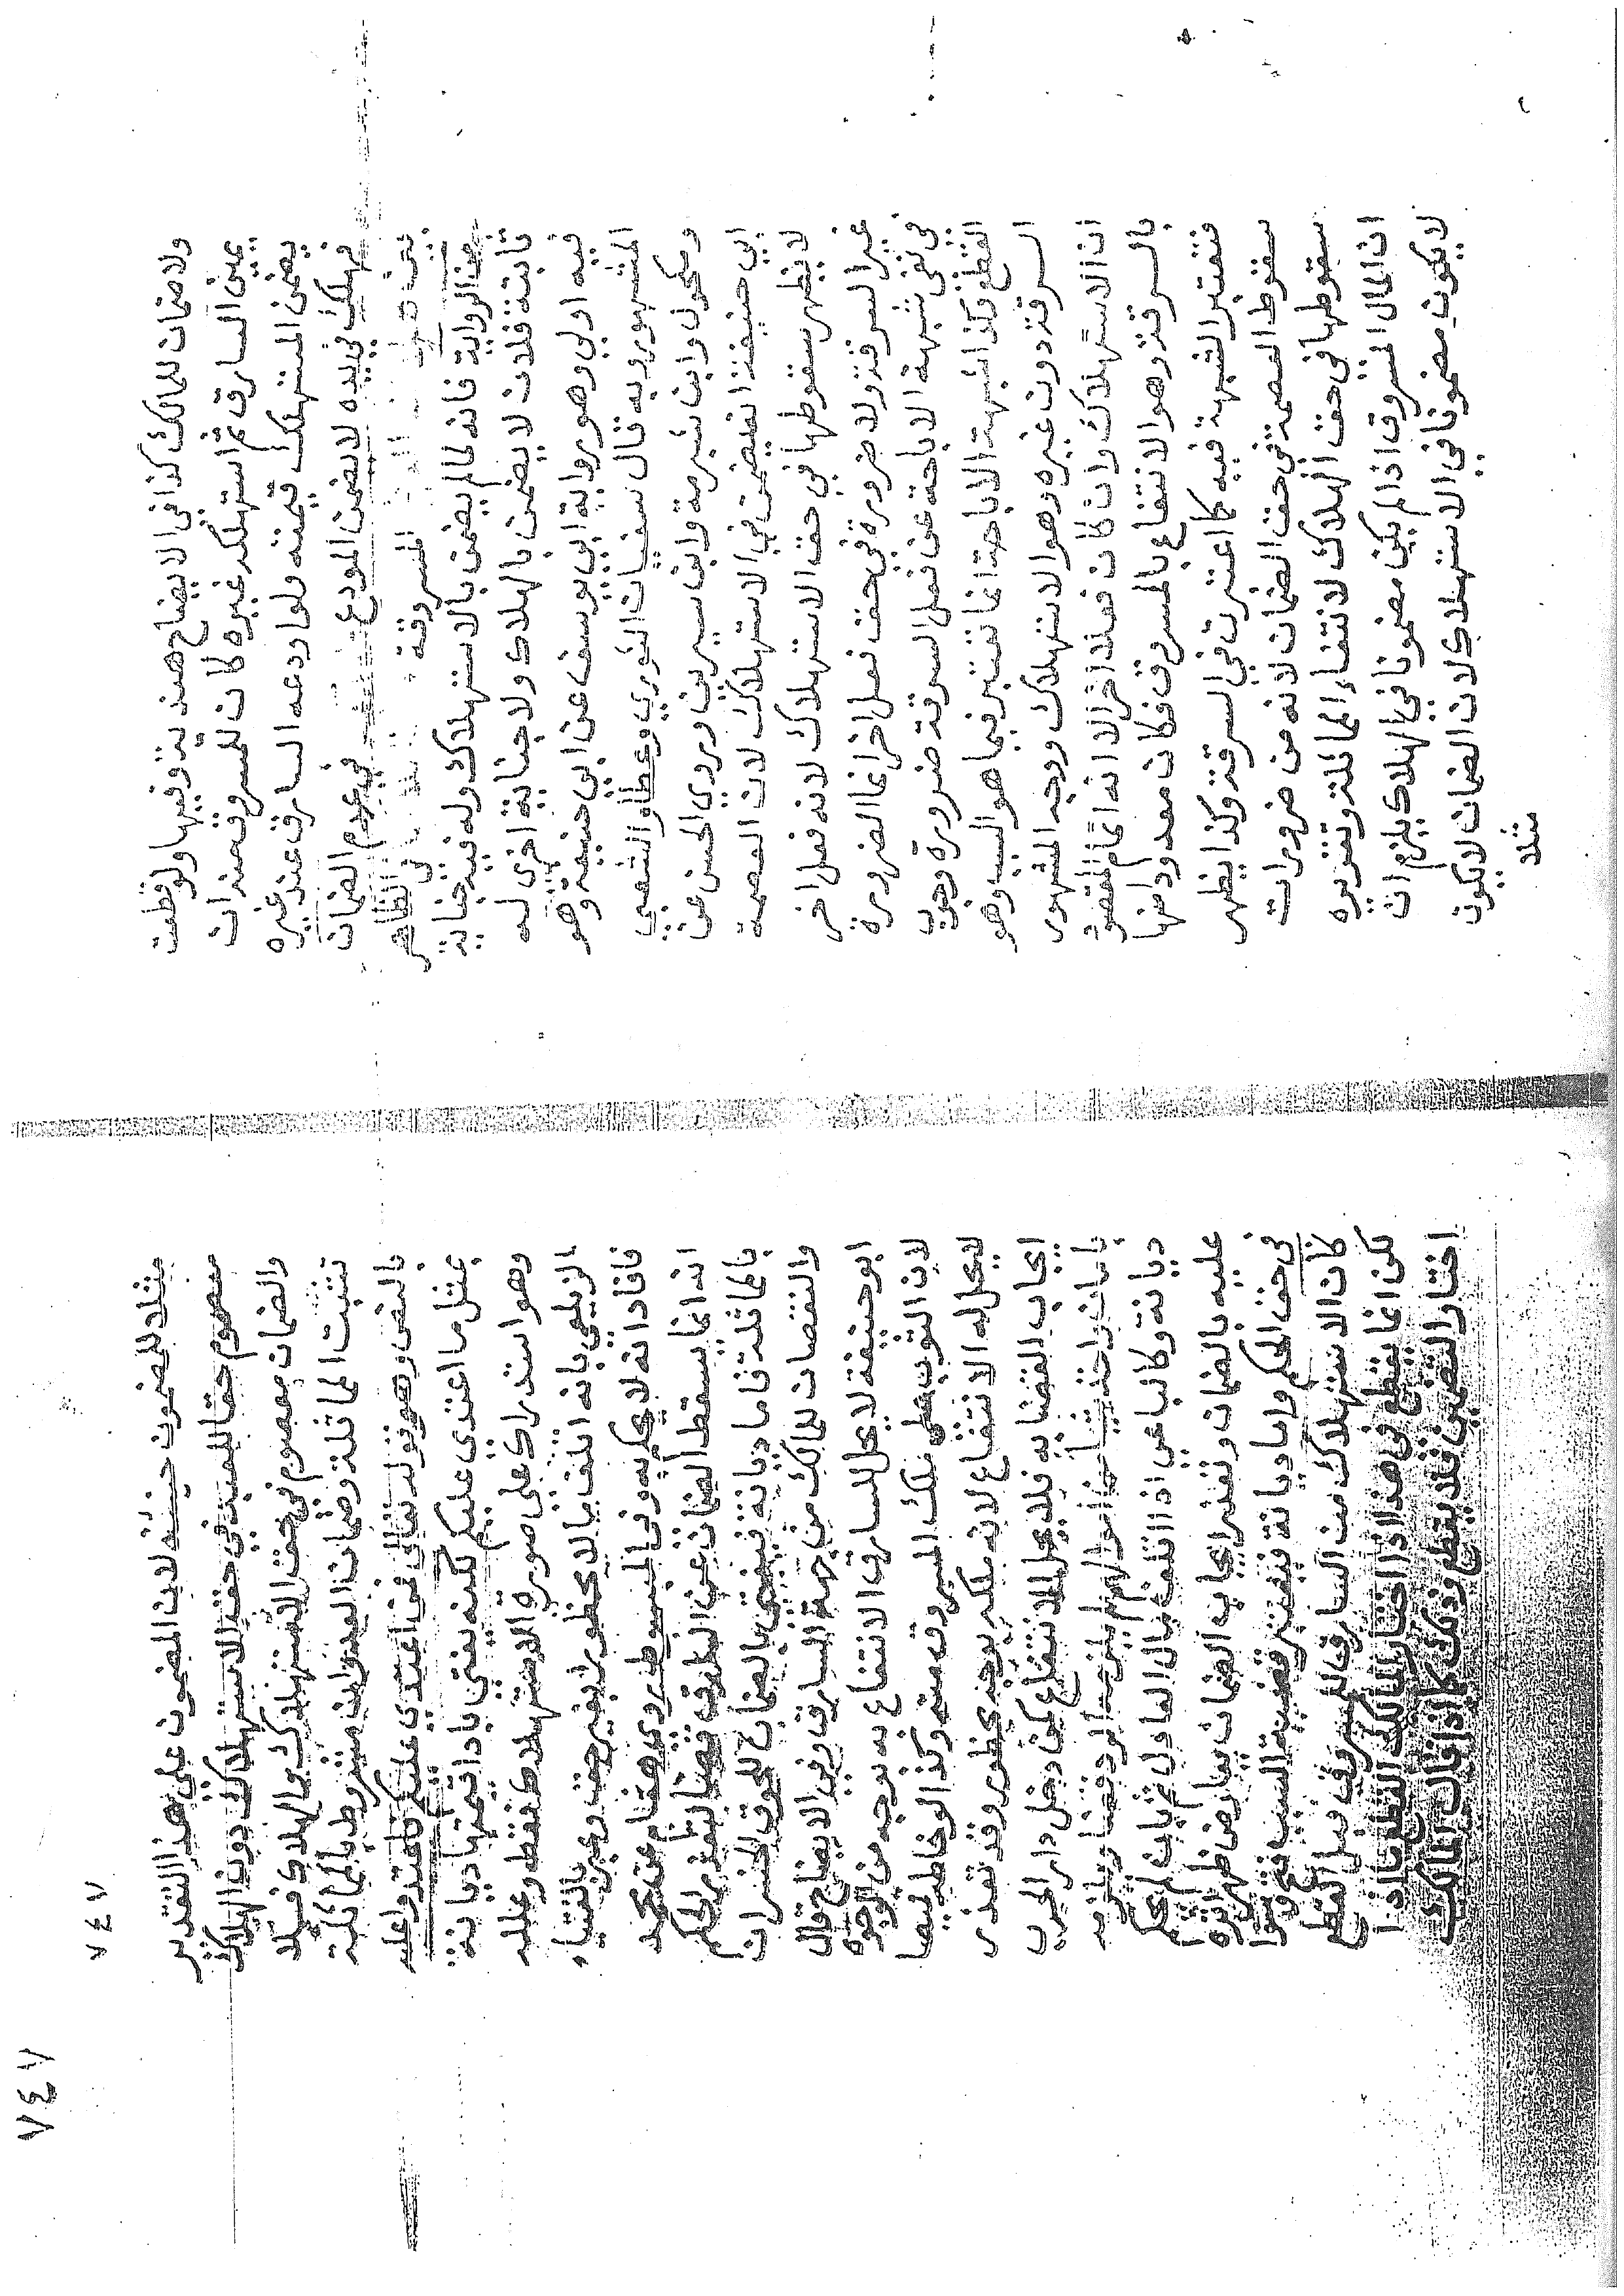 ولا ضمان للمالك كذا في الايضاح هند توفيها ولو قطعت
يمين السارق ثم استهلكه غيره كان للمسروق منه ان
يضمن المستهلك قيمته ولو اودعه السارق عند غيره
فهلك في يده لا يضمن المودع في عدم الضمان
بين المسروقة في الظاهر
من الرواية فانه لما لم يضمن بالاستهلاك وله فيه جناية
ثابتة فلان لا يضمن بالهلاك ولا جناية اخرى له
فيه اولى وهو رواية ابي يوسف عن ابي حنيفة وهو
المشهور وبه قال سفيان الثوري وعطاو الشعبي
ومكحول وابن شبرمة وابن سيرين وروي الحسن عن
ابي حنيفة انه يضمن في الاستهلاك لان العصمة
لا يظهر سقوطها في حق الاستهلاك لانه فعل اخر
غير السرقة ولا ضرورة في حق فعل اخر انما الضرورة
في نفي شبهة الاباحة عن فعل السرقة ضرورة وجوب
القطع فكذا شبهة الاباحة انما تعتبر فيما هو السبب وهو
السرقة دون غيره وهو الاستهلاك ووجه المشهور
ان الاستهلاك وان كان فعلا اخر الا انه اتمام المقصود
بالسرقة وهو الانتفاع بالمسروق فكان معدودا منها
فتعتبر الشبهة فيه كما اعتبرت في السرقة وكذا يظهر
سقوط العصمة في حق الضمان لانه من ضرورات
سقوطها في حق الهلاك لانتفاء المماثلة وتقريره
ان المال المسروق اذا لم يكن مضمونا في الهلاك يلزم ان
لا يكون مضمونا في الاستهلاك لان الضمان لا يكون
مثلا
٧٤٧
٧٤٧
مثلا للمضمون حينئذ لان المضمون على هذا التقدير
معصوم حقا للعبد في حق الاستهلاك دون الهلاك
والضمان معصوم في حق الاستهلاك والهلاك فلا
تثبت المماثلة وضمان العدوان مشروط بالمماثلة
بالنص وهو قوله تعالى فمن اعتدى عليكم فاعتدوا عليه
بمثل ما اعتدى عليكم لكنه يفتي باداء قيمتها ديانة
وهو استدراك على صورة الاستهلاك فقط وعلله
الزيلعي بانه اتلف مالا محظورا بغير حق وعبر بالفتيا
فافاد انه لا يحكم به وفي المبسوط روى هشام عن محمد
انه انما يسقط الضمان عن السارق قضا لتعذر الحكم
بالمماثلة فاما ديانة فيفتي بالضمان للحوق الخسران
والنقصان للمالك من جهة السارق وفي الايضاح قال
ابو حنيفة لا يحل للسارق الانتفاع به بوجه من الوجوه
لان الثوب على ملك المسروق منه وكذا لو خاطه قميصا
لا يحل له الانتفاع لانه ملكه بوجه محظور وقد تعذر
ايجاب القضا به فلا يحل الانتفاع كمن دخل دار الحرب
بامان واخذ شيا من اموالهم لم يلزمه الرد قضا ويلزمه
ديانة وكالباغي اذا اتلف مال العادل ثم تاب لم يحكم
عليه بالضمان وتعذر ايجاب الضمان بعارض ظهر اثره
في حق الحكم واما ديانة فيعتبر قضية السبب
كان الاستهلاك من السارق للمسروق قبل القطع
لكن انما يقطع في هذا اذا اختار المالك القطع فاما اذا
اختار التضمين فلا يقطع وذلك كما اذا قال المالك